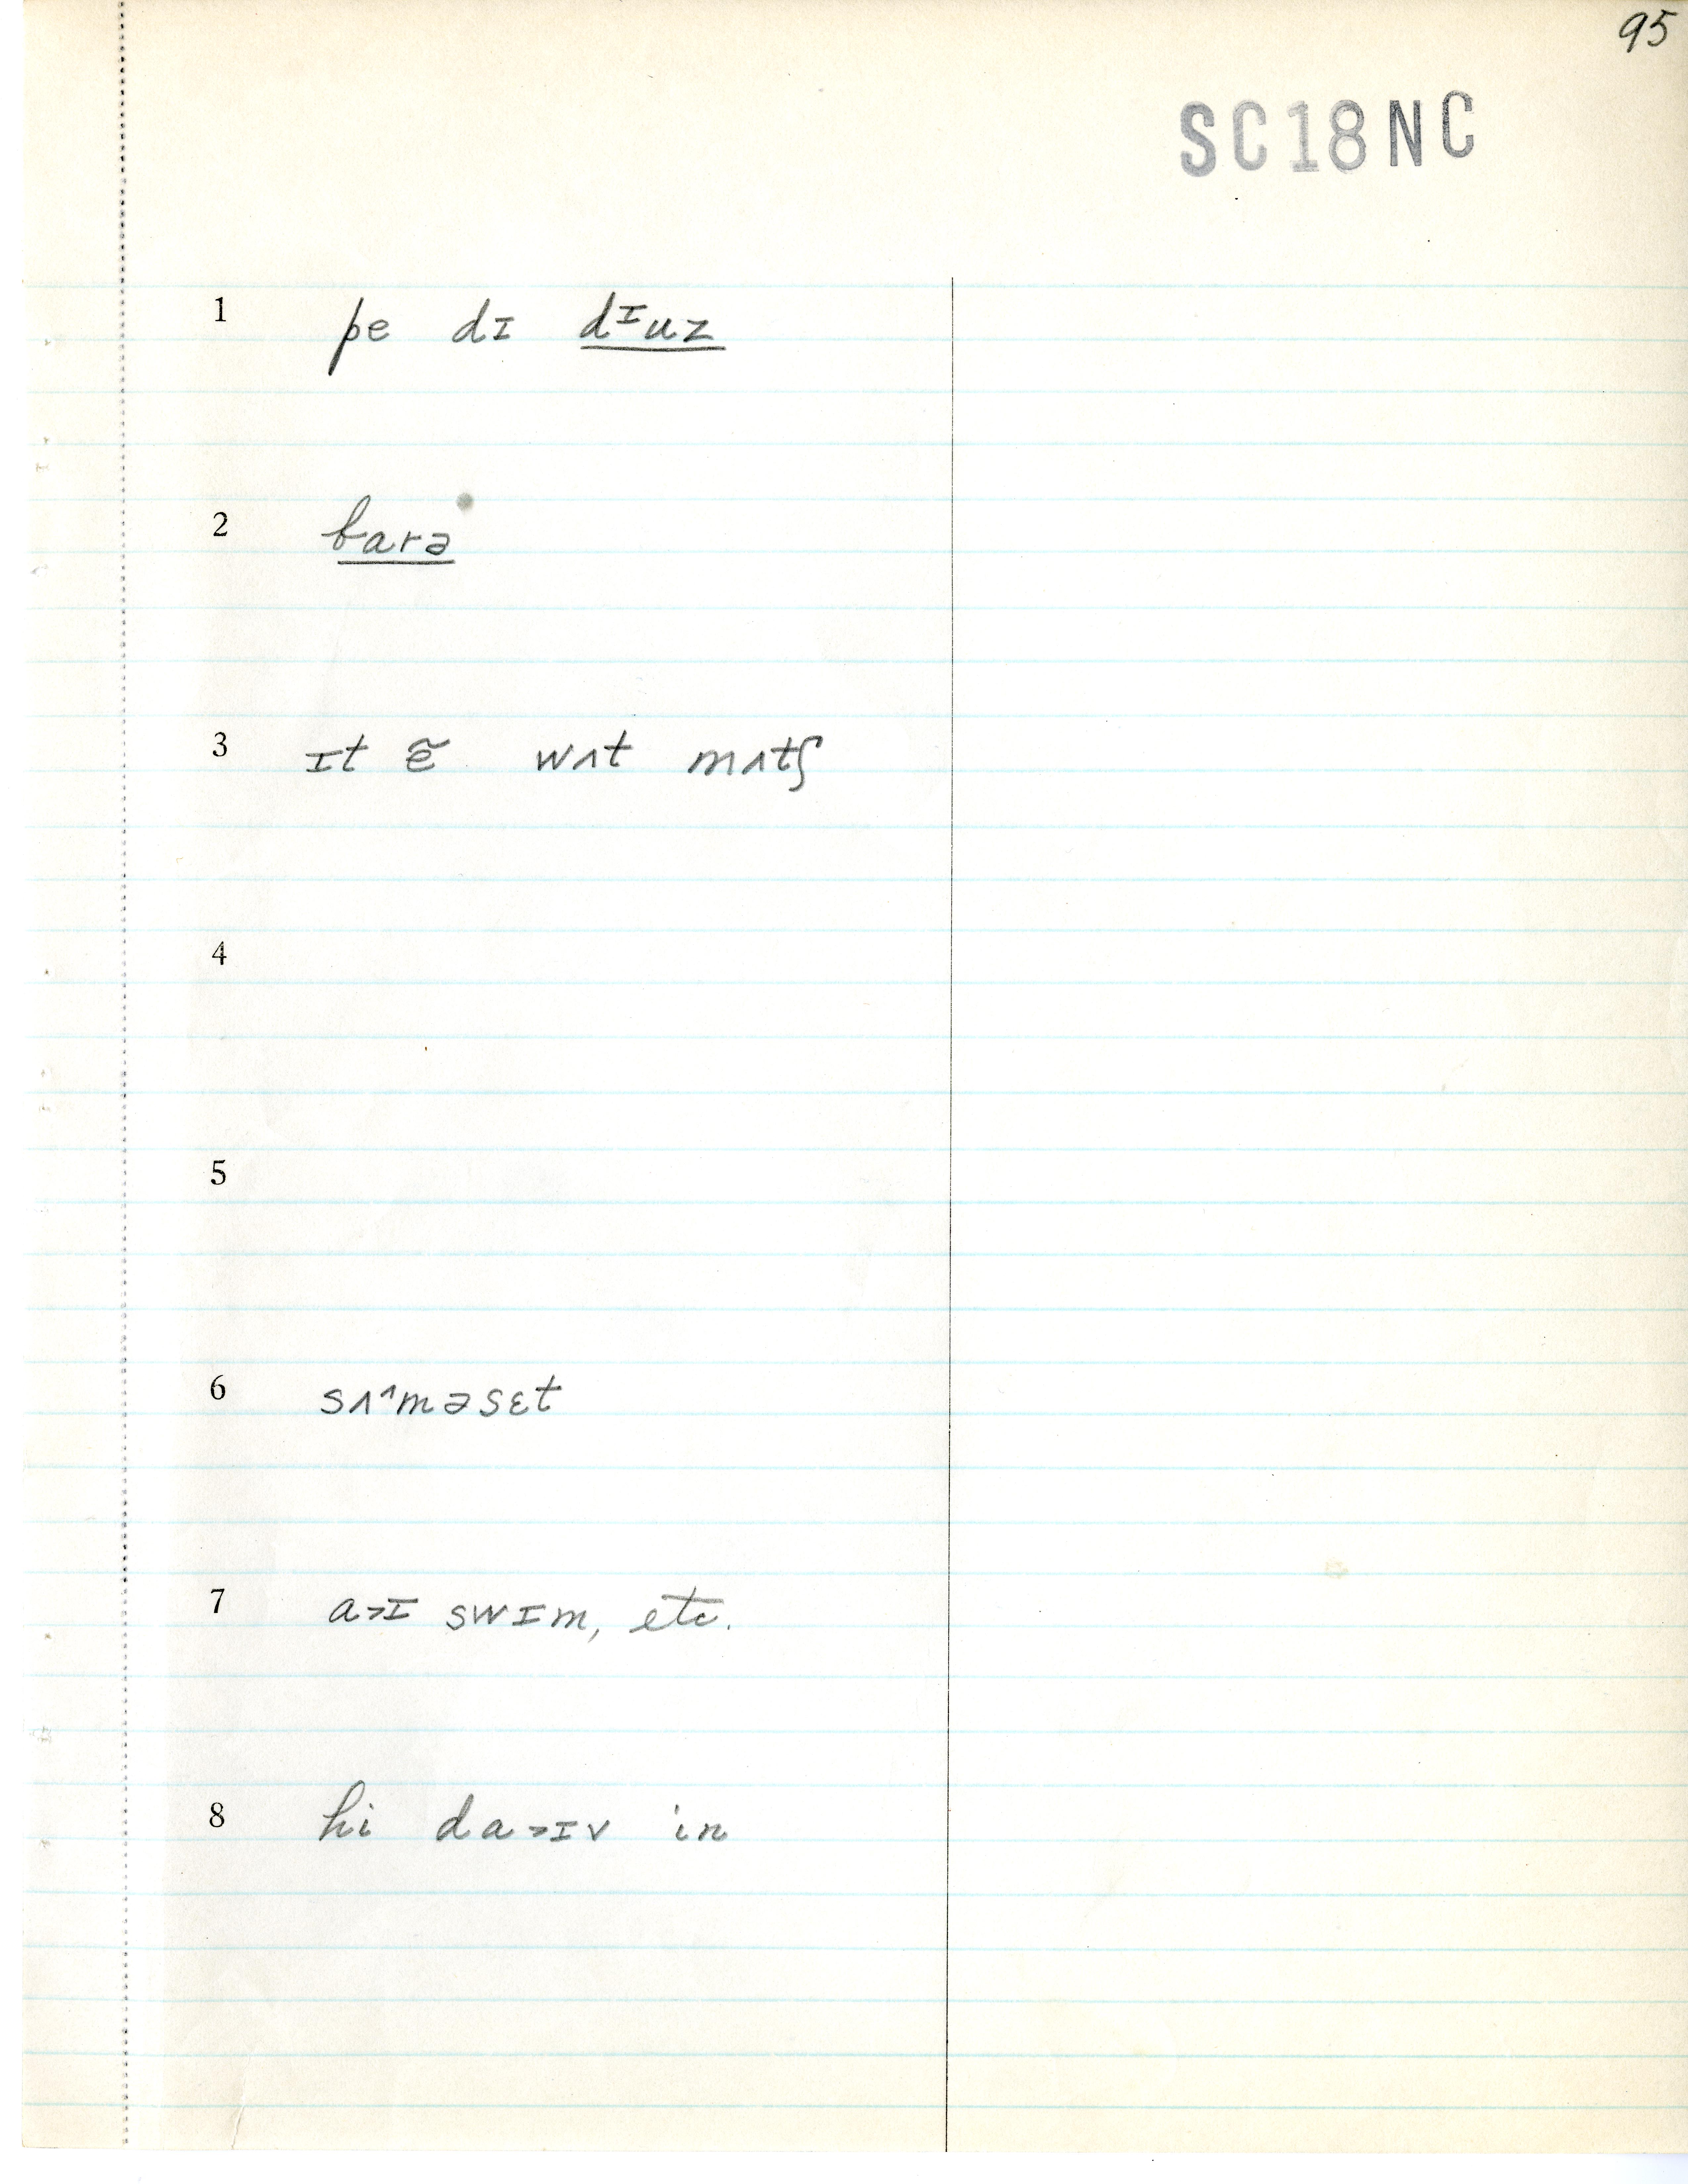 95
SC18NC
1 pe dɪ dᶦuz
2 barə
3 ɪt ẽ wʌt mʌtʃ
4
5
6 sʌ^məsɛt
7 a˃ɪ swɪm, etc.
8 hi da˃ɪv in